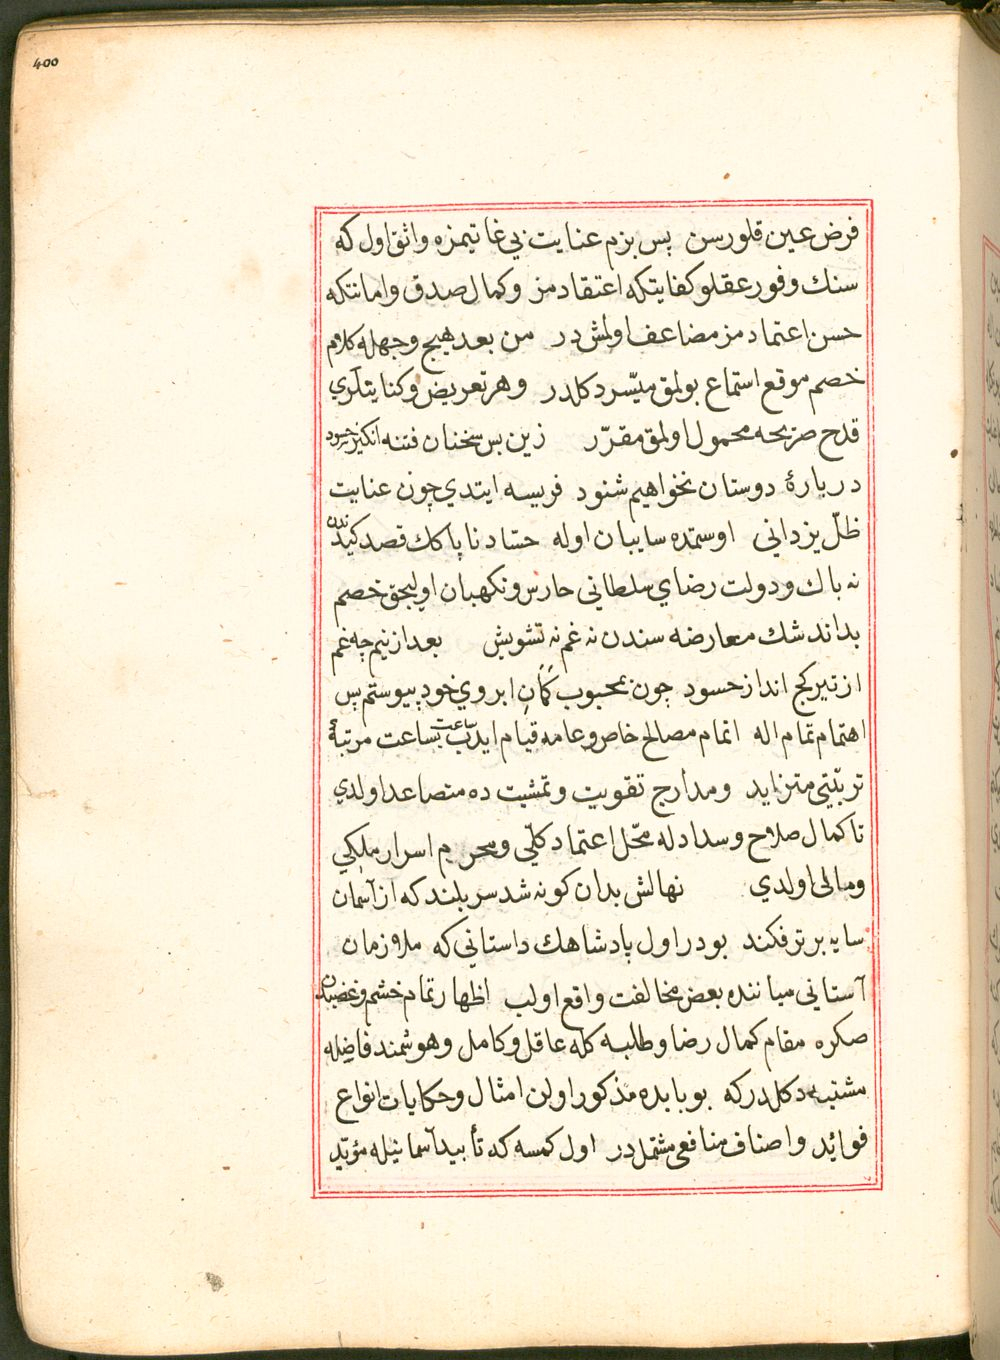 400
فرض عين قلورسن پس بزم عنايت بي غايتيمزه واثق اول كه
سنك وفور عقلو كفايتكه اعتقادمز وكمال صدق وامانتكه
حسن اعتمادمز مضاعف اولمش در من بعد هيچ وجهله كلام
خصم موقع استماع بولمق ميسّر دكلدر وهر تعريض وكنايتلري
قدح صريحه محمول اولمق مقرّر زين بس سخنان فتنه انكيز حسود
دربارهٔ دوستان نخواهيم شنود فريسه ايتدي چون عنايت
ظلّ يزداني اوستمده سايبان اوله حسّاد ناپاكك قصد كيندن
نه باك ودولت رضاي سلطاني حارس ونكهبان اوليجق خصم
بداندشك معارضه سندن نه غم نه تشويش بعد ازينم چه غم
از تير كج انداز حسود چون بمحبوب كمان ابروي خود پيوستم پس
اهتمام تمام اله اتمام مصالح خاص وعامه قيام ايدب ساعت بساعت مرتبهٔ
تربيتي متزايد ومدارج تقويت وتمشيت ده متصاعد اولدي
تا كمال صلاح وسدادله محّل اعتماد كلّي ومحرم اسرار ملكي
ومالي اولدي نهالش بدان كونه شد سر بلند كه از آسمان
سايه برتر فكند بودر اول پادشاهك داستاني كه ملازمان
آستاني مياننده بعض مخالفت واقع اولب اظهار تمام خشم وغضبدن
صكره مقام كمال رضا وطلبسه كله عاقل وكامل وهوشمند فاضله
مشتبه دكلدركه بو بابده مذكور اولن امثال وحكايات انواع
فوائد واصناف منافعي مشتملدر اول كمسه كه تأييد آسمانيله مؤيّد